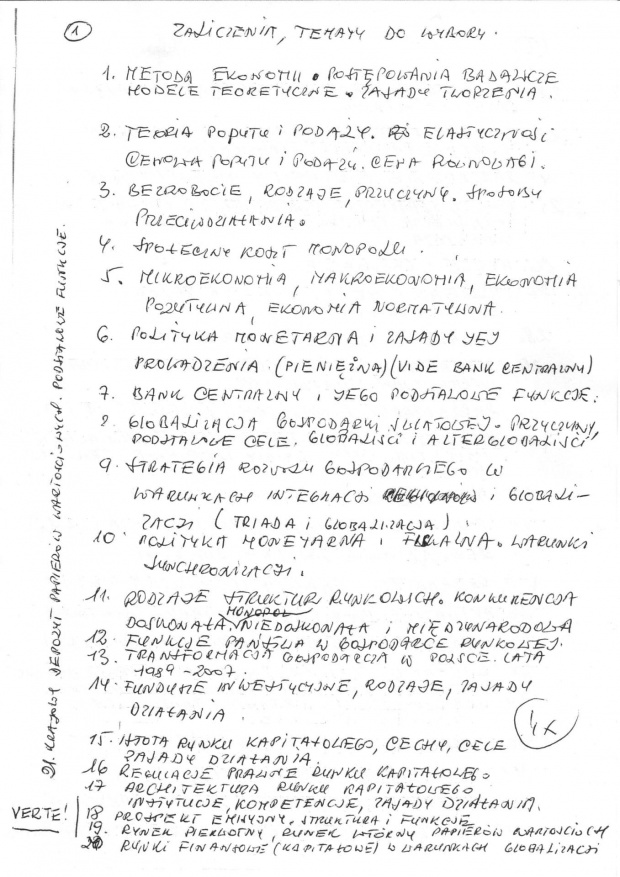 1
ZALICZENIA, TEMATY DO WYBORU.
1. METODA EKONOMII. POSTĘPOWANIA BADAWCZE
MODELE TEORETYCZNE. ZASADY TWORZENIA.
2. TEORIA POPYTU I PODAŻY. ELASTYCZNOŚĆ
CENOWA POPYTU I PODAŻY. CENA RÓWNOWAGI.
3. BEZROBOCIE, RODZAJE, PRZYCZYNY. SPOSOBY
PRZECIWDZIAŁANIA.
4. SPOŁECZNY KOSZT MONOPOLU.
5. MIKROEKONOMIA, MAKROEKONOMIA, EKONOMIA
POZYTYWNA, EKONOMIA NORMATYWNA.
6. POLITYKA MONETARNA I ZASADY JEJ
PROWADZENIA. (PIENIĘŻNA) (VIDE BANK CENTRALNY)
7. BANK CENTRALNY I JEGO PODSTAWOWE FUNKCJE.
8. GLOBALIZACJA GOSPODARKI ŚWIATOWEJ. PRZYCZYNY,
PODSTAWOWE CELE. GLOBALIŚCI I ALTERGLOBALIŚCI
9. STRATEGIA ROZWOJU GOSPODARCZEGO W
WARUNKACH INTEGRACJI I GLOBALI-
ZACJI (TRIADA I GLOBALIZACJA)
10. POLITYKA MONETARNA I FISKALNA. WARUNKI
SYNCHRONIZACJI.
11. RODZAJE STRUKTUR RYNKOWYCH. KONKURENCJA
MONOPOL
DOSKONAŁA, NIEDOSKONAŁA I MIĘDZYNARODOWA
12. FUNKCJE PAŃSTWA W GOSPODARCE RYNKOWEJ.
13. TRANSFORMACJA GOSPODARCZA W POLSCE. LATA
1989-2007.
14. FUNDUSZE INWESTYCYJNE, RODZAJE, ZASADY
DZIAŁANIA.
15. ISTOTA RYNKU KAPITAŁOWEGO, CECHY, CELE
ZASADY DZIAŁANIA.
16 REGULACJE PRAWNE RYNKU KAPITAŁOWEGO
17 ARCHITEKTURA RYNKU KAPITAŁOWEGO
INSTYTUCJE, KOMPETENCJE, ZASADY DZIAŁANIA.
18 PROSPEKT EMISYJNY. STRUKTURA I FUNKCJE
19. RYNEK PIERWOTNY, RYNEK WTÓRNY PAPIERÓW WARTOŚCIOWYCH
20 RYNKI FINANSOWE (KAPITAŁOWE) W WARUNKACH GLOBALIZACJI
VERTE!
21. KRAJOWY DEPOZYT PAPIERÓW WARTOŚCIOWYCH. PODSTAWOWE FUNKCJE.